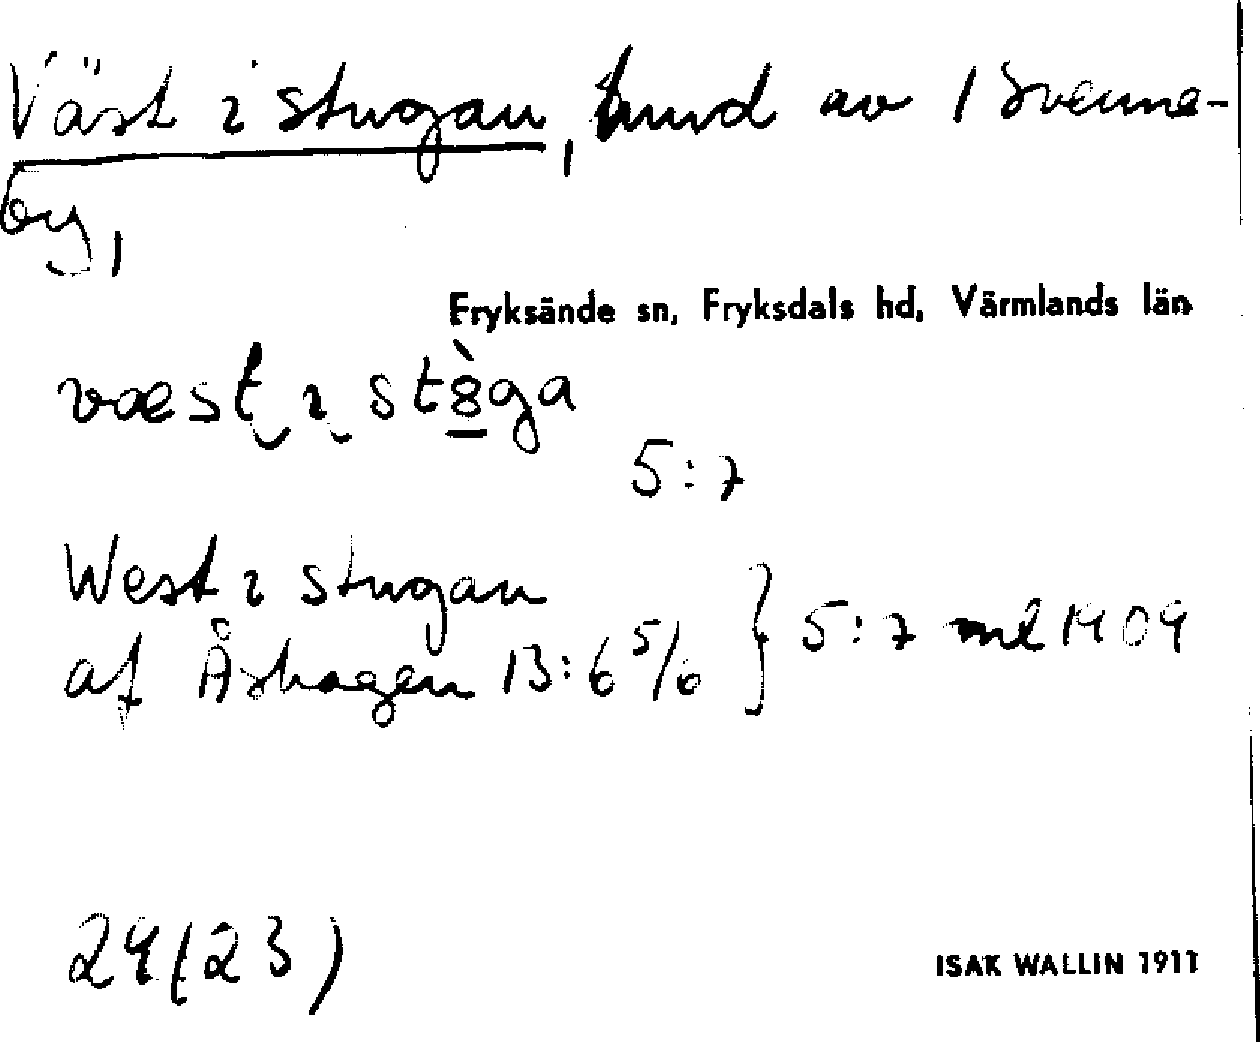 Väst i stugan, hmd av 1 Svenne-
by,
Fryksände sn, Fryksdals hd, Värmlands län
væst i stȣ̀ga
5:7
West i stugan
af Åshagen 13:6 5/6 } 5:7 ml 1909
24(23)
ISAK WALLIN 1911